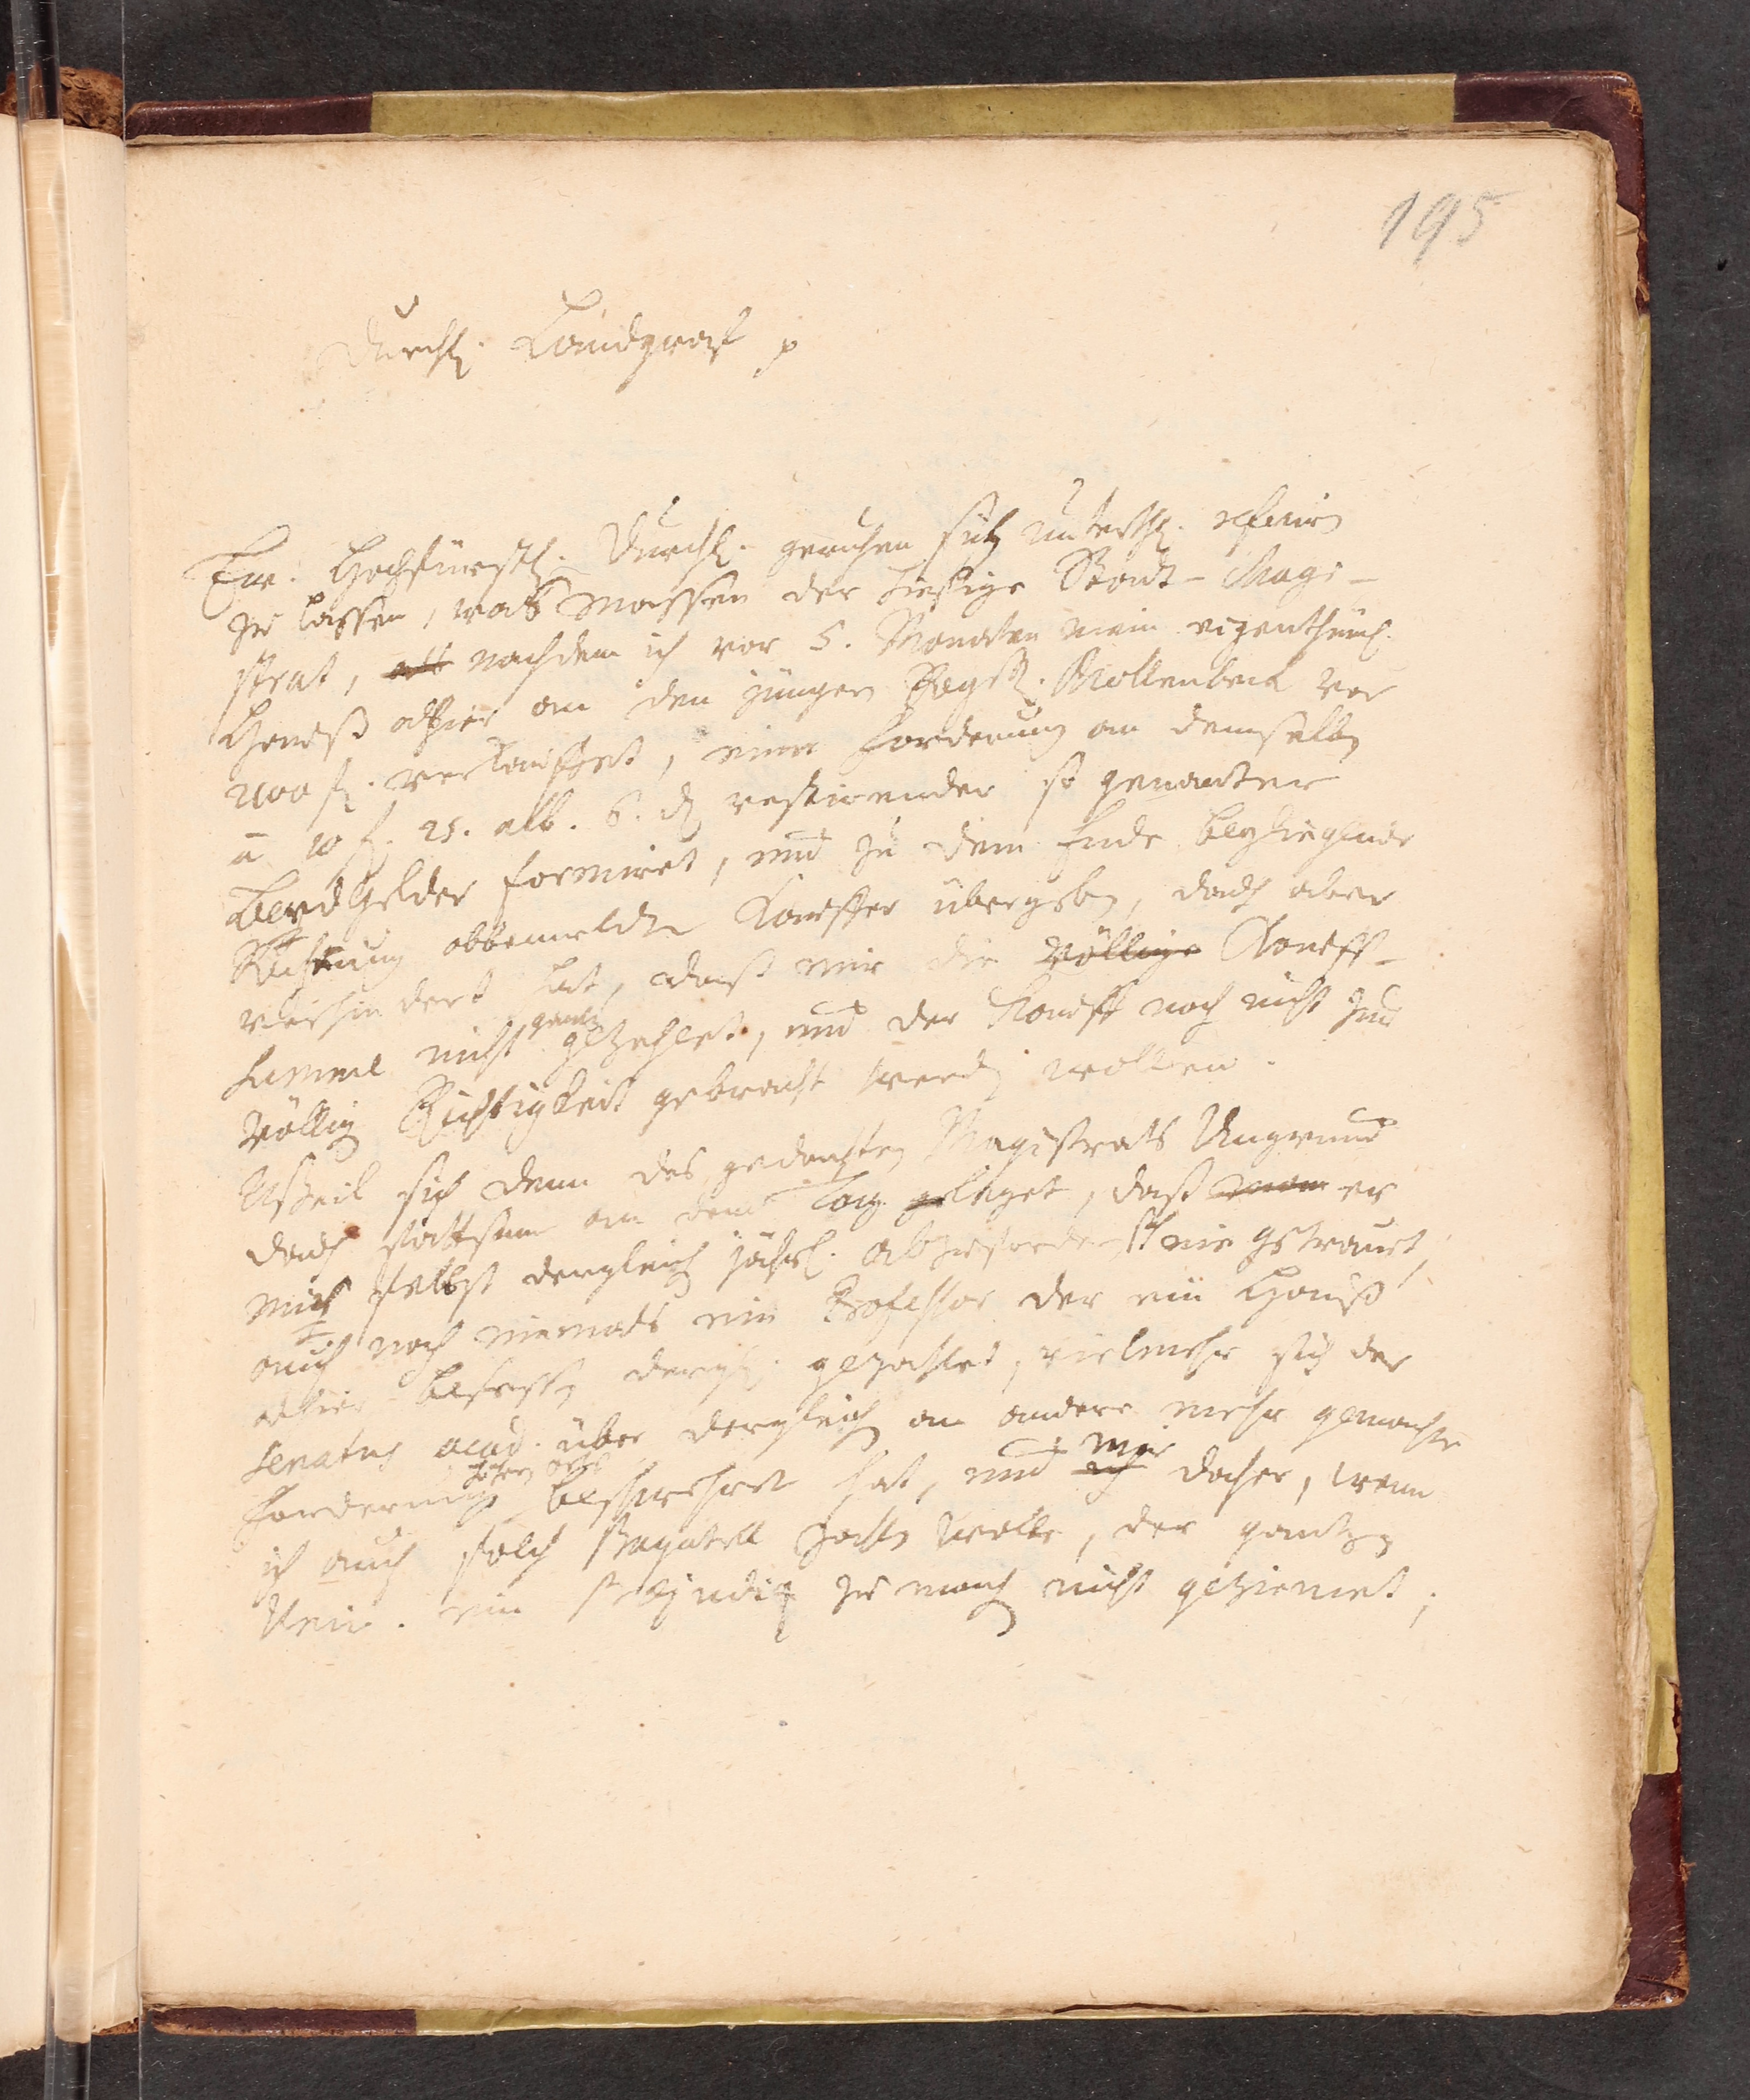 195
Durchl. Landgraf p
Ew. Hochfürstl. Durchl. geruhen sich unterth. referiren
zu lassen, was massen der hiesige Stadt-Magi-
strat, als nachdem ich vor 5. Monaten mein eigenthüml.
Hauß alhier an den jüngern Mollenbeck vor
fl. verkauffet, eine Forderung an demselben
a 10 f. 25. alb. 6. d restirender so genanter
gelder formiret, und zu dem Ende beyliegende
Rechnung obbemeldten Kauffer übergeben, dadh aber
verhindert hat, daß mir die völlige Kauff-
Summe nicht gantz gezahlet, und der Kauff noch nicht zur
völligen Richtigkeit gebracht werden wollen.
sich denn des gedachten Magistrats Ungrund
dadh sattsam an den Tag geleget, daß man er
mich selbst dergleichen jährl. abzufordern nie getrauet,
auch noch niemals ein Professor der ein Hauß
alhier besessen dergl. gezahlet, vielmehr sich der
Senatus acad. über dergleichen an andere mehr gemachte
Forderungen beschwehret hat, und ich mir daher, wenn
ich auch solch Bagatell zahlen wolte, der gantzen
Univ. ein præjudiz zu machen nicht geziemet;